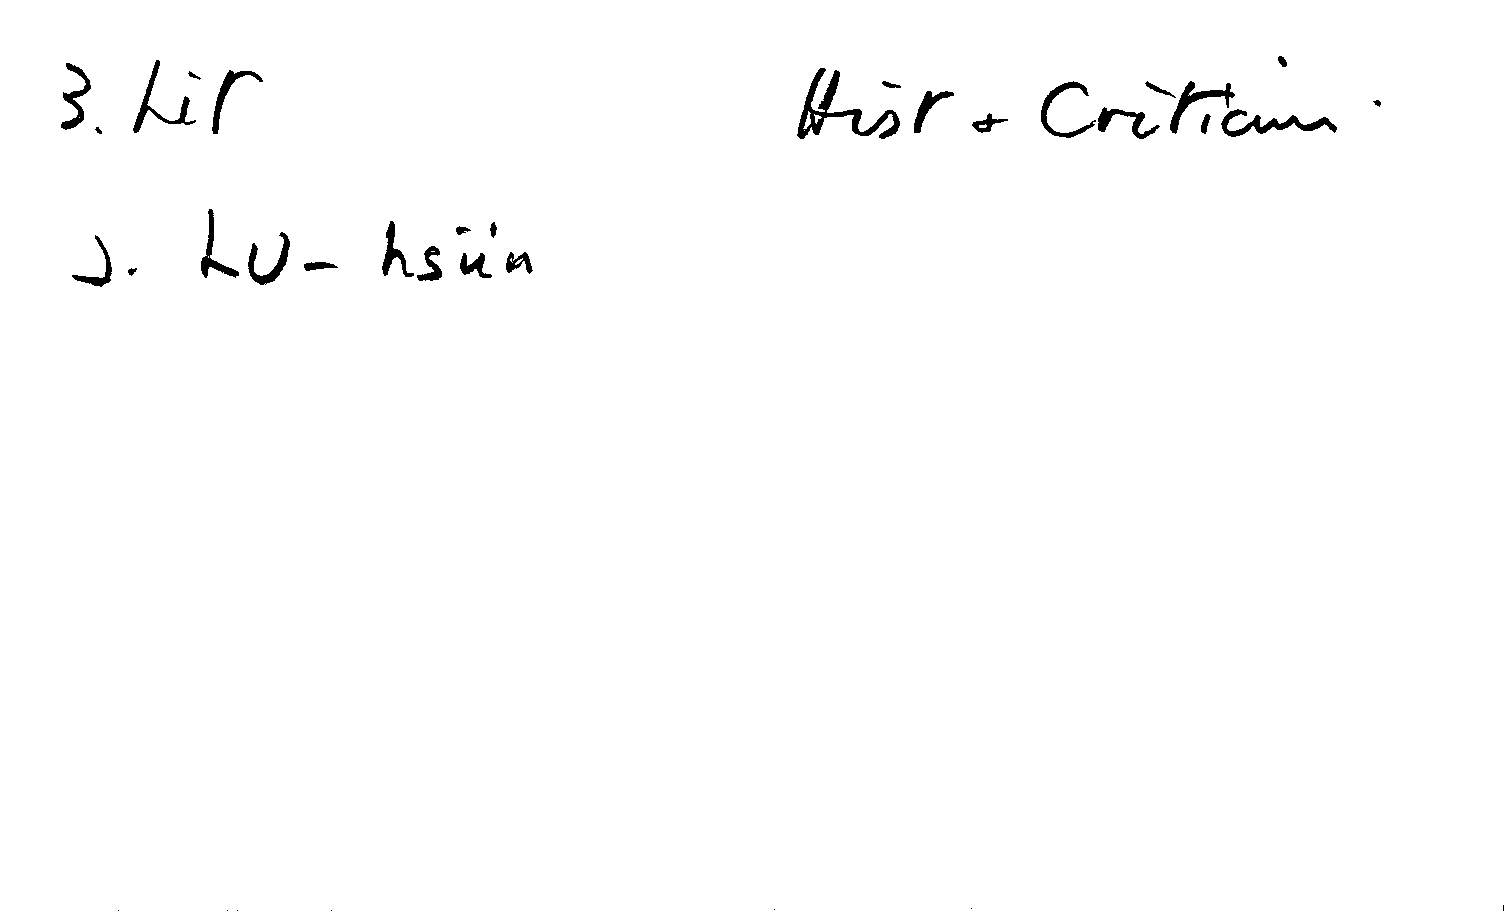 3. Lit Hist + Criticism.
2. Lu-hsün